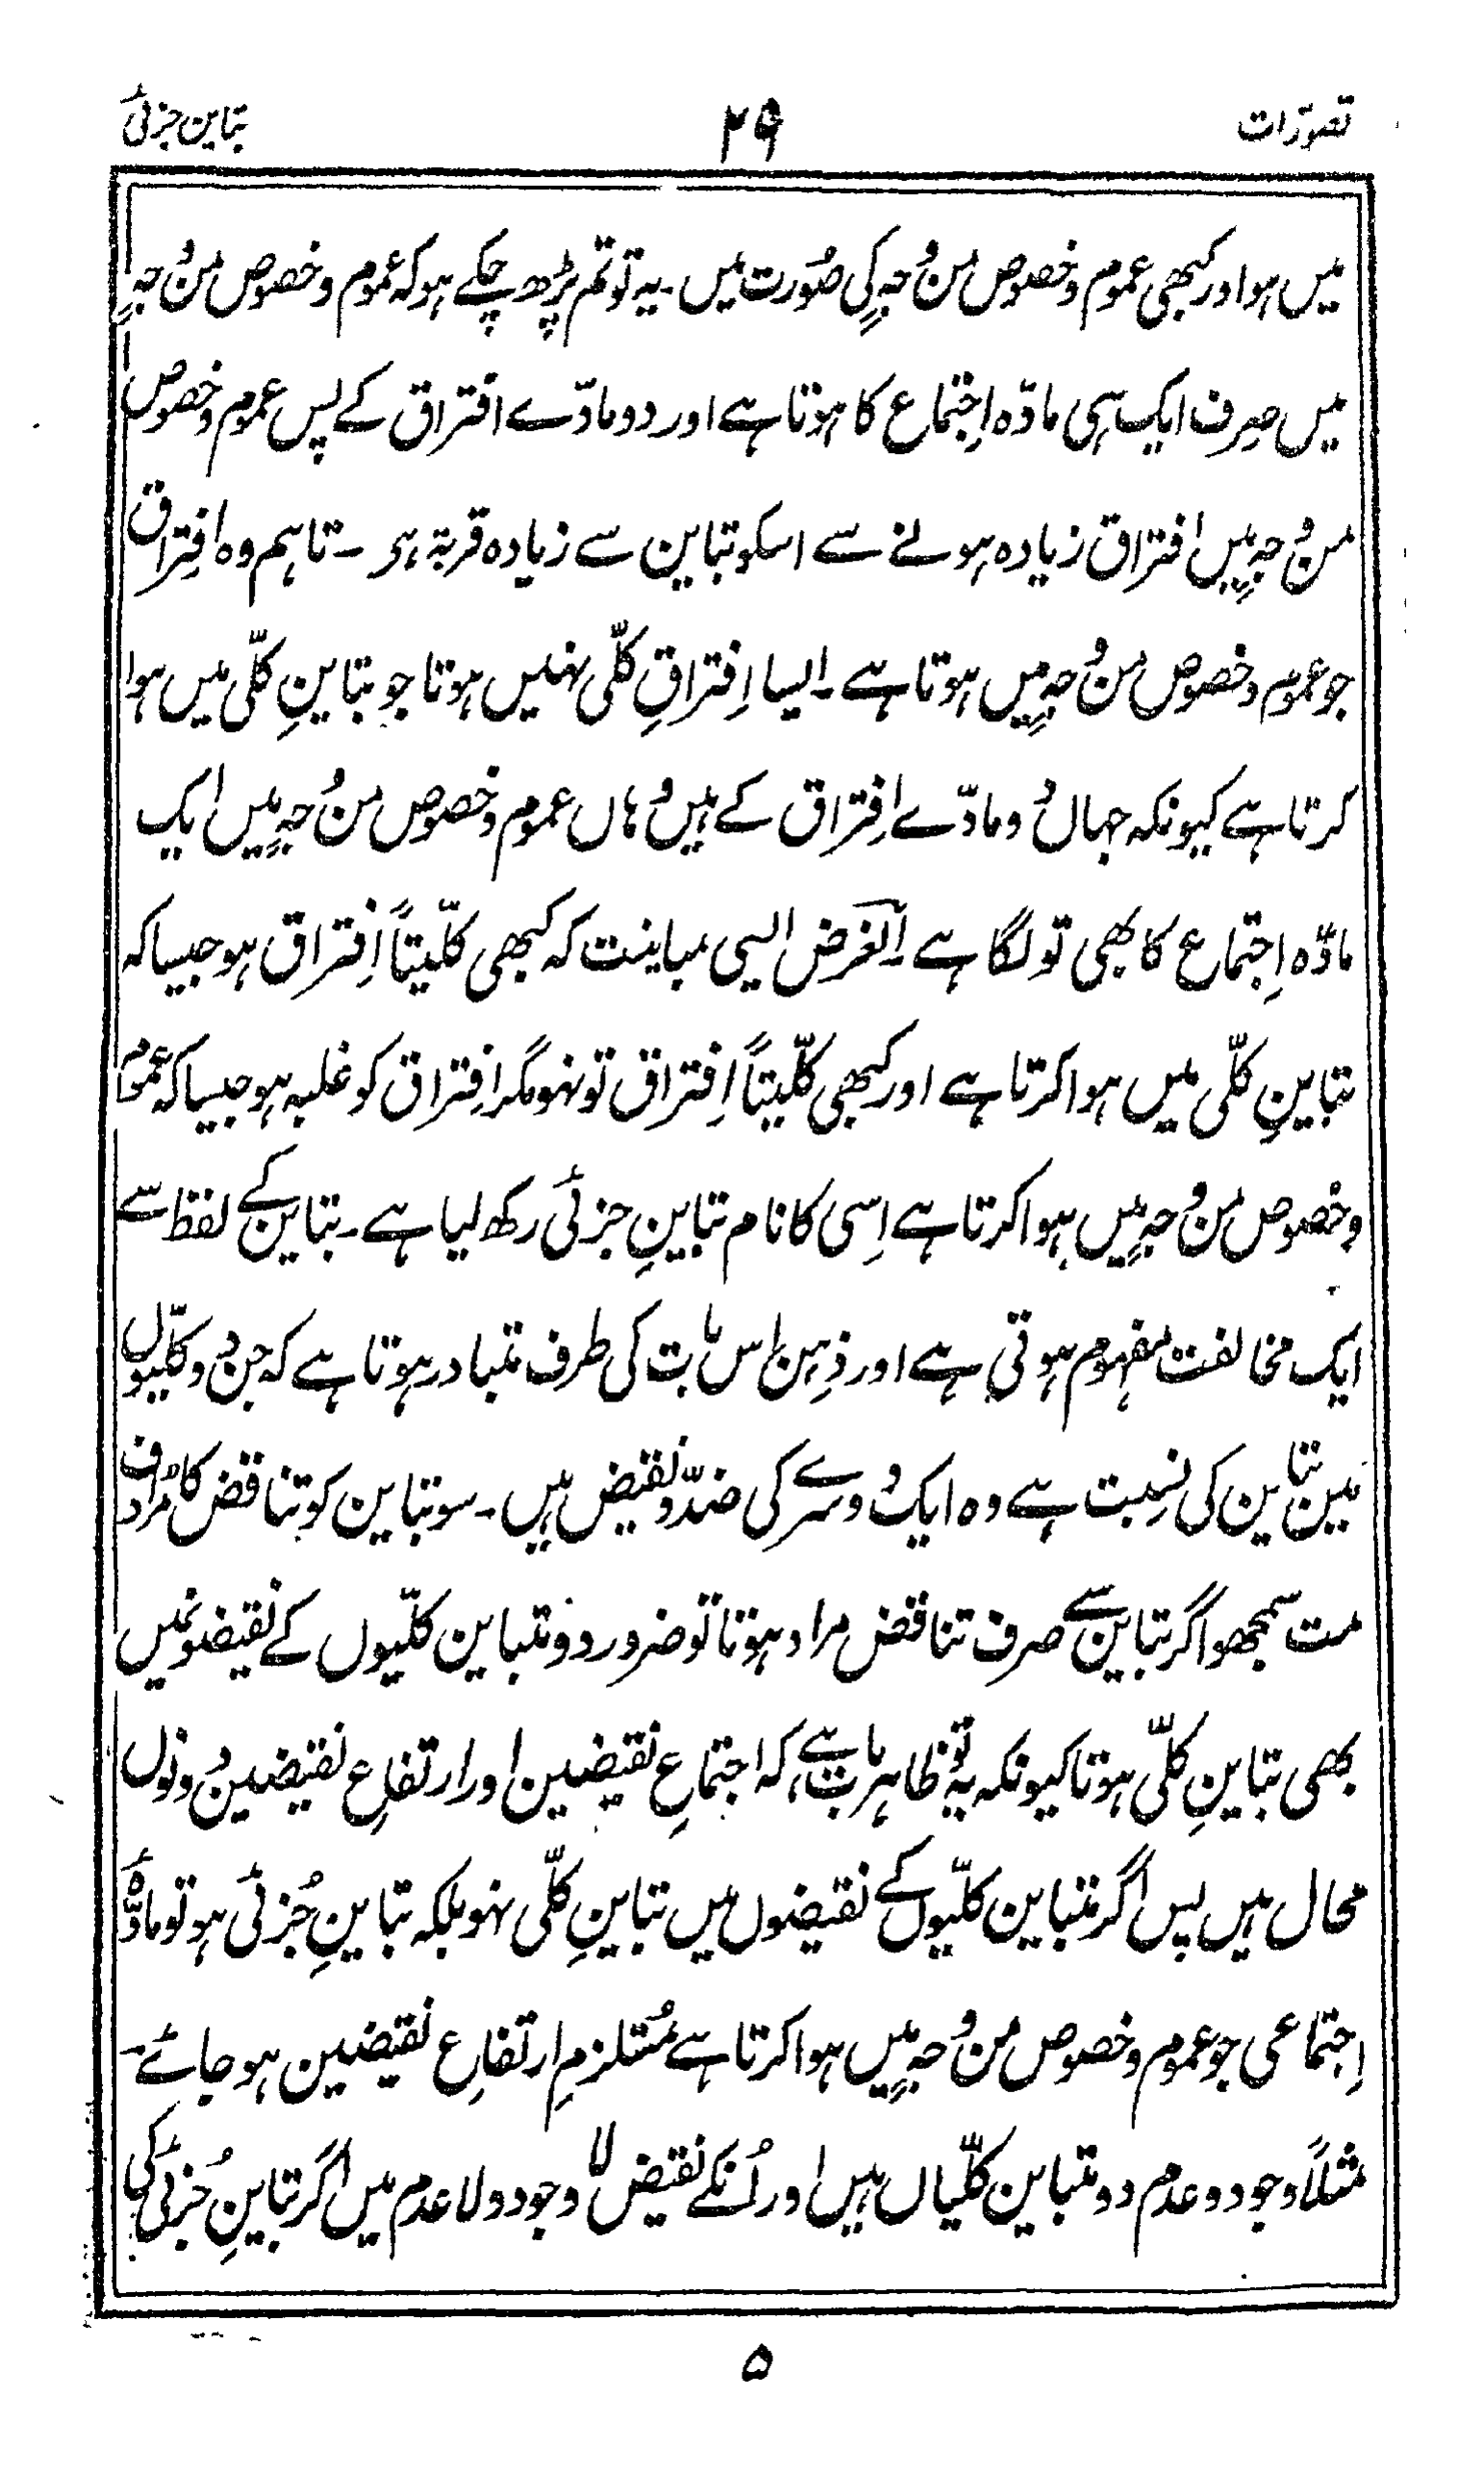 تصوّرات ۲۹ تباین جزئی
میں ہو اور کبھی عموم و خصوص مِنْ وُجہٍ کی صُورت میں ۔ یہ تو تم پڑھ چکے ہو کہ عموم و خصوص مِنْ وُجہٍ
میں صِرف ایک ہی مادّہ اِجتماع کا ہوتا ہے اور دو مادّے افتراق کے پس عموم و خصوص
مِنْ وُجہٍ میں افتراق زیادہ ہونے سے اسکو تباین سے زیادہ قربۃ ہے ۔ تاہم وہ اِفتِراق
جو عموم و خصوص مِنْ وُجہٍ میں ہوتا ہے ۔ ایسا اِفتراقِ کلّی نہیں ہوتا جو تباینِ کلّی میں ہوا
کرتا ہے کیونکہ جہاں دُو مادّے اِفتِراق کے ہیں وُہاں عموم و خصوص مِنْ وُجہٍ میں ایک
مادّہ اِجتماع کا بھی تو لگا ہے ۔ الغرض ایسی مباینت کہ کبھی کلّیتاً اِفتراق ہو جیسا کہ
تباینِ کلّی میں ہوا کرتا ہے اور کبھی کلّیتاً اِفتراق تو نہو مگر اِفتِراق کو غلبہ ہو جیسا کہ عموم
و خصوص مِنْ وُجہٍ میں ہوا کرتا ہے اِسی کا نام تباینِ جزئی رکھ لیا ہے ۔ تباین کے لفظ سے
ایک مخالفت مفہوم ہوتی ہے اور ذِہن اِس بات کی طرف متبادر ہوتا ہے کہ جن دُو کلّیوں
میں تباین کی نِسبت ہے وہ ایک دُوسرے کی ضدّ و نقیض ہیں ۔ سو تباین کو تناقض کا مُرادِف
مت سمجھو اگر تباین سے صرف تناقض مراد ہوتا تو ضرور دو متباین کلّیوں کے نقیضونمیں
بھی تباینِ کلّی ہوتا کیونکہ یہ تو ظاہر بات ہے، کہ اجتماعِ نقیضین اور ارتفاعِ نقیضین دُونوں
محال ہیں پس اگر متباین کلّیوں کے نقیضوں میں تباینِ کلّی نہو بلکہ تباینِ جُزئی ہو تو مادّۂ
اِجتماعی جو عموم و خصوص مِنْ وُجہٍ میں ہوا کرتا ہے مُستلزمِ ارتفاعِ نقیضین ہو جائے ۔
مثلاً وجود و عدم دو متباین کلّیاں ہیں اور اُنکے نقیض لا وجود و لا عدم میں اگر تباینِ جُزئی کی
۵